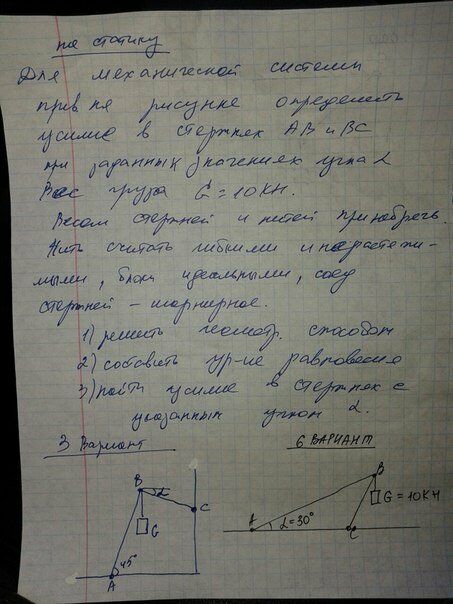 на статику
Для механической системы
прив на рисунке определить
усилие в стержнях AB и BC
при заданных значениях угла α
Вес груза G = 10 КН.
Весом стержней и нитей принебречь.
Нить считать гибкими и нерастяжи-
мыми, блоки идеальными, соед
стержней – шарнирное.
1) решить геометр. способом
2) составить ур-ие равновесия
3) найти усилие в стержнях с
указанным углом α.
3 Вариант
6 ВАРИАНТ
B
α
C
G
45°
A
B
G = 10 КН
A
α=30°
C